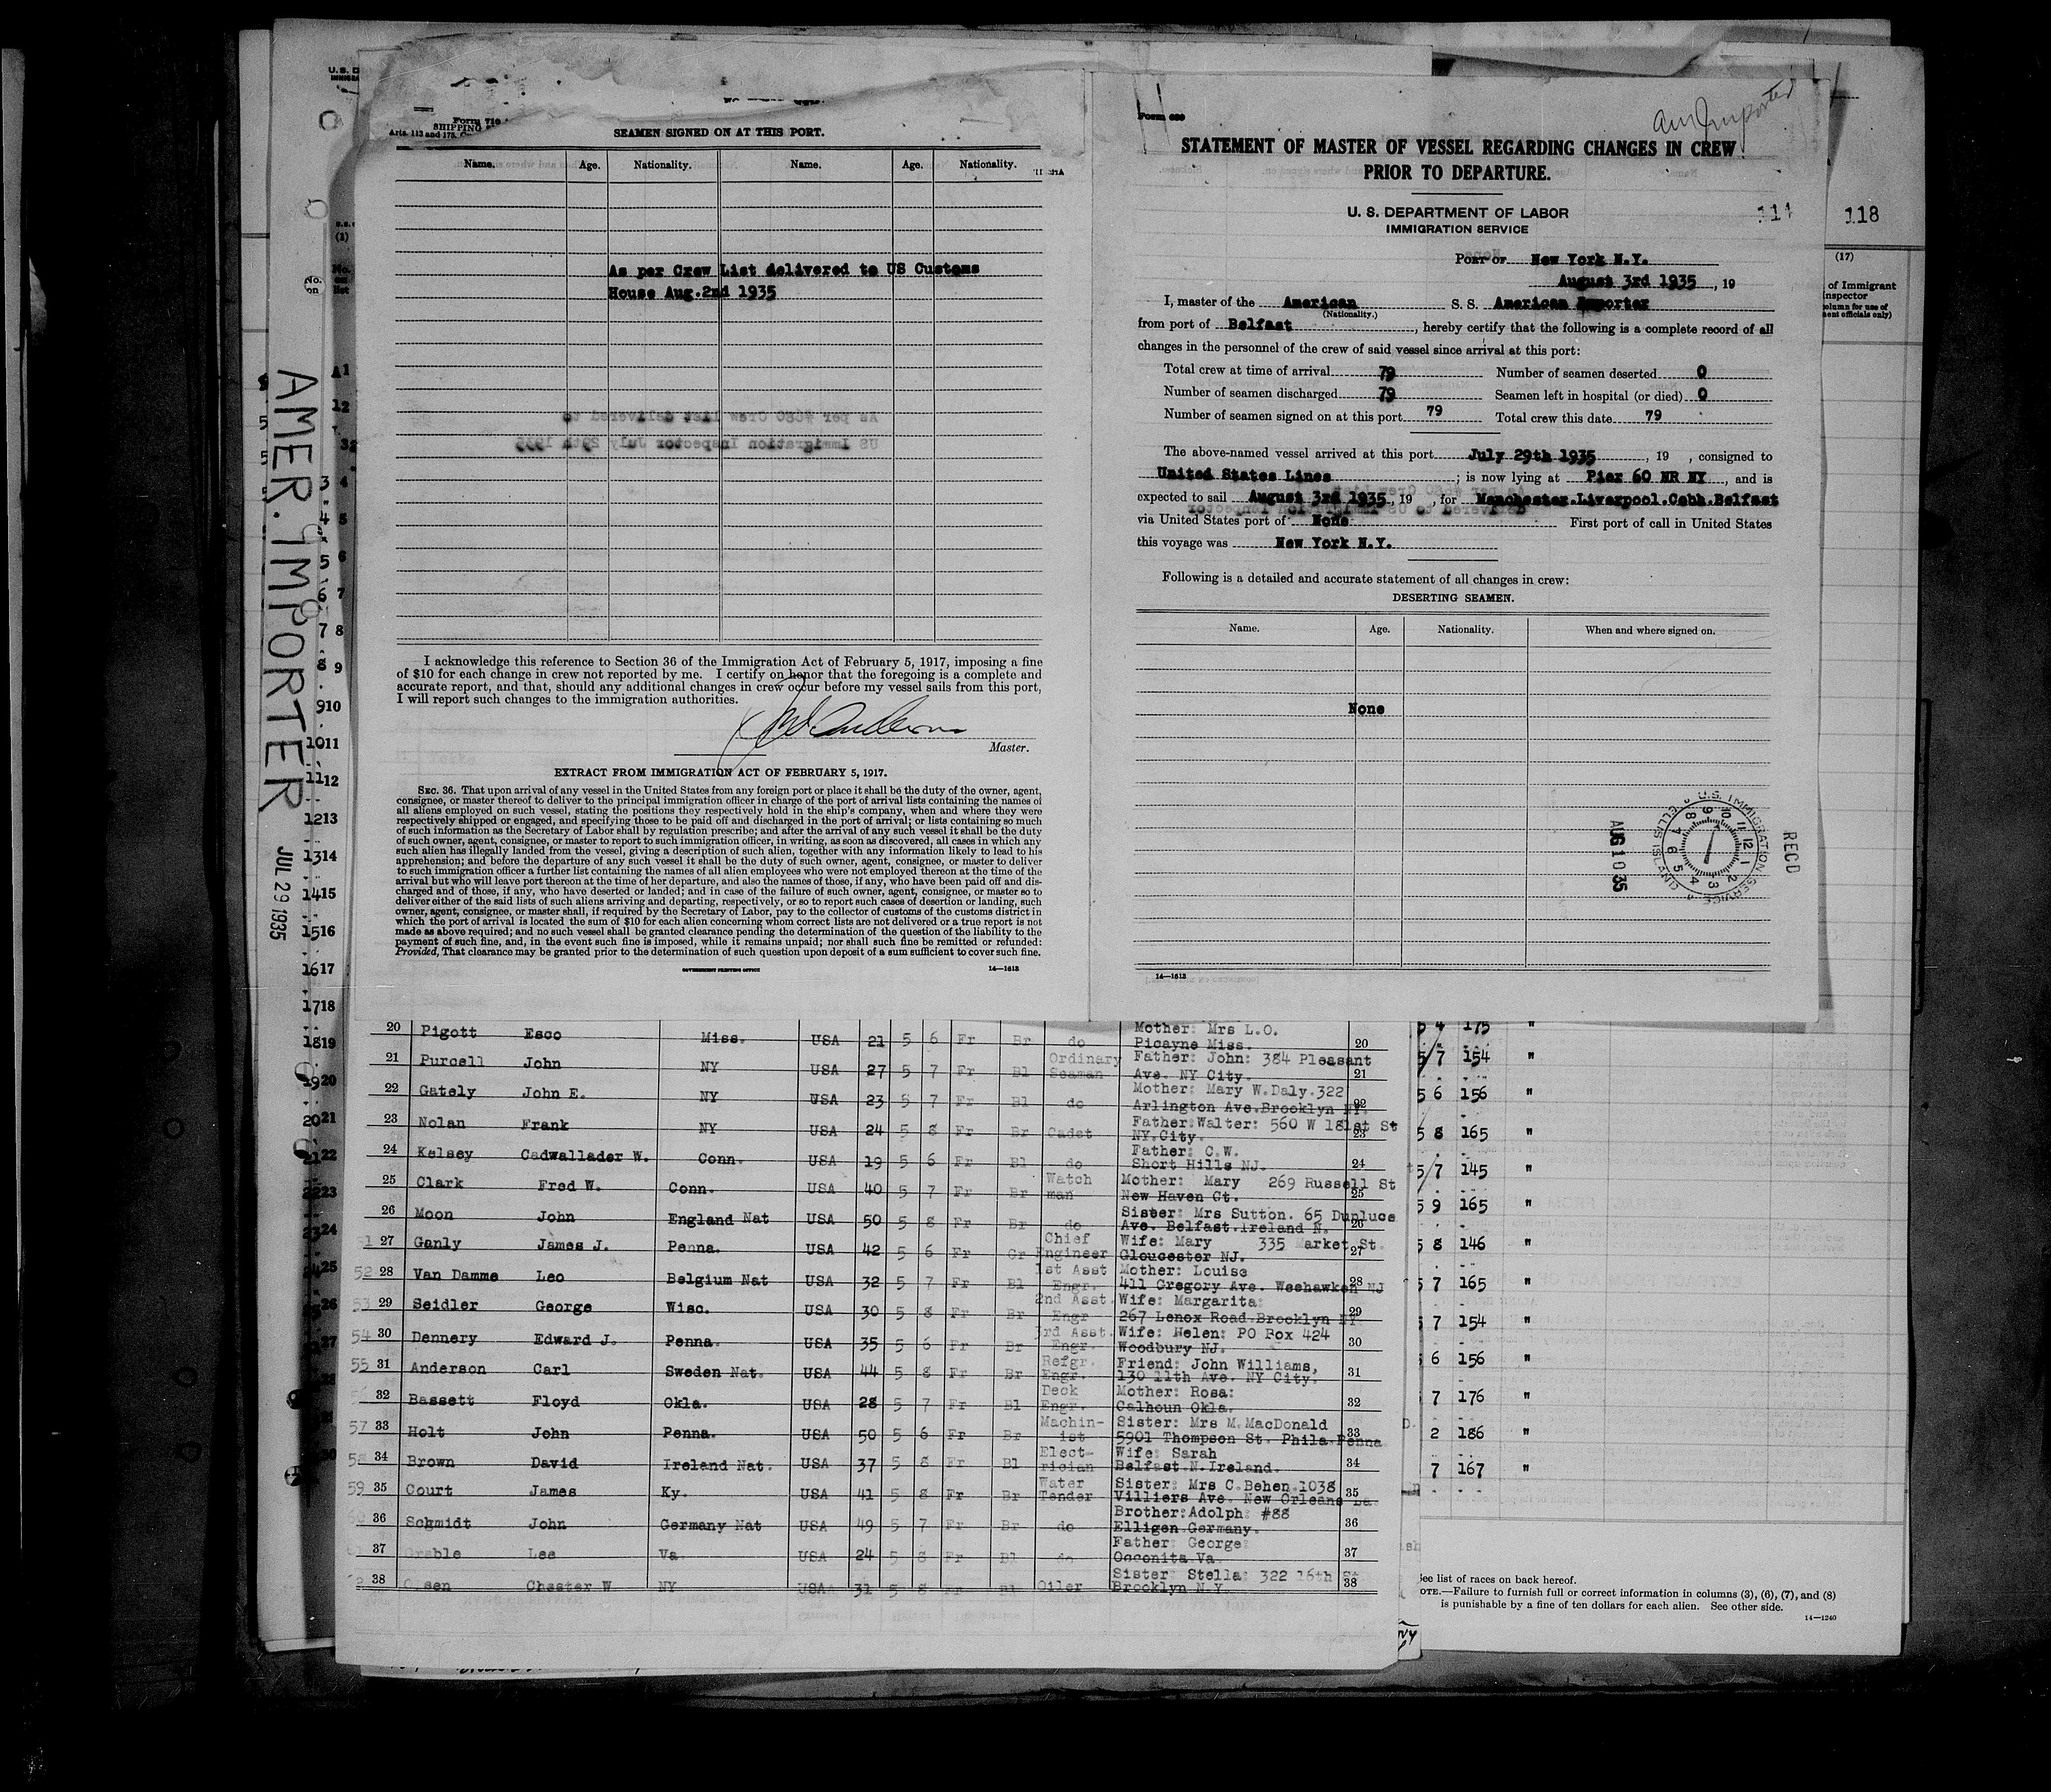 AMER. IMPORTER
JUL 29 1935
SEAMEN SIGNED ON AT THIS PORT.
Name. Age. Nationality. Name. Age. Nationality.
As per Crew List delivered to US Customs
House Aug.2nd 1935
I acknowledge this reference to Section 36 of the Immigration Act of February 5, 1917, imposing a fine
of $10 for each change in crew not reported by me. I certify on honor that the foregoing is a complete and
accurate report, and that, should any additional changes in crew occur before my vessel sails from this port,
I will report such changes to the immigration authorities.
Master.
EXTRACT FROM IMMIGRATION ACT OF FEBRUARY 5, 1917.
SEC. 36. That upon arrival of any vessel in the United States from any foreign port or place it shall be the duty of the owner, agent,
consignee, or master thereof to deliver to the principal immigration officer in charge of the port of arrival lists containing the names of
all aliens employed on such vessel, stating the positions they respectively hold in the ship's company, when and where they were
respectively shipped or engaged, and specifying those to be paid off and discharged in the port of arrival; or lists containing so much
of such information as the Secretary of Labor shall by regulation prescribe; and after the arrival of any such vessel it shall be the duty
of such owner, agent, consignee, or master to report to such immigration officer, in writing, as soon as discovered, all cases in which any
such alien has illegally landed from the vessel, giving a description of such alien, together with any information likely to lead to his
apprehension; and before the departure of any such vessel it shall be the duty of such owner, agent, consignee, or master to deliver
to such immigration officer a further list containing the names of all alien employees who were not employed thereon at the time of the
arrival but who will leave port thereon at the time of her departure, and also the names of those, if any, who have been paid off and dis-
charged and of those, if any, who have deserted or landed; and in case of the failure of such owner, agent, consignee, or master so to
deliver either of the said lists of such aliens arriving and departing, respectively, or so to report such cases of desertion or landing, such
owner, agent, consignee, or master shall, if required by the Secretary of Labor, pay to the collector of customs of the customs district in
which the port of arrival is located the sum of $10 for each alien concerning whom correct lists are not delivered or a true report is not
made as above required; and no such vessel shall be granted clearance pending the determination of the question of the liability to the
payment of such fine, and, in the event such fine is imposed, while it remains unpaid; nor shall such fine be remitted or refunded:
Provided, That clearance may be granted prior to the determination of such question upon deposit of a sum sufficient to cover such fine.
GOVERNMENT PRINTING OFFICE 14—1613
Am Importer
Form 689
STATEMENT OF MASTER OF VESSEL REGARDING CHANGES IN CREW
PRIOR TO DEPARTURE.
U. S. DEPARTMENT OF LABOR
IMMIGRATION SERVICE
118
PORT OF New York N.Y.
August 3rd 1935, 19
I, master of the American S. S. American Importer
(Nationality.)
from port of Belfast, hereby certify that the following is a complete record of all
changes in the personnel of the crew of said vessel since arrival at this port:
Total crew at time of arrival 79 Number of seamen deserted 0
Number of seamen discharged 79 Seamen left in hospital (or died) 0
Number of seamen signed on at this port 79 Total crew this date 79
The above-named vessel arrived at this port July 29th 1935, 19 , consigned to
United States Lines; is now lying at Pier 60 NR NY, and is
expected to sail August 3rd 1935, 19 , for Manchester.Liverpool.Cobh.Belfast
via United States port of None First port of call in United States
this voyage was New York N.Y.
Following is a detailed and accurate statement of all changes in crew:
DESERTING SEAMEN.
Name. Age. Nationality. When and where signed on.
None
RECD
U.S. IMMIGRATION SERVICE ELLIS ISLAND
AUG 10 35
14—1613
(17)
of Immigrant
Inspector
20 Pigott Esco Miss. USA 21 5 6 Fr Br do Mother: Mrs L.O. Picayne Miss. 20
21 Purcell John NY USA 27 5 7 Fr Bl Ordinary Seaman Father: John: 384 Pleasant Ave. NY City. 21
22 Gately John E. NY USA 23 5 7 Fr Bl do Mother: Mary W.Daly.322 Arlington Ave.Brooklyn NY. 22
23 Nolan Frank NY USA 24 5 8 Fr Br Cadet Father:Walter: 560 W 181st St NY.City. 23
24 Kelsey Cadwallader W. Conn. USA 19 5 6 Fr Bl do Father: C.W. Short Hills NJ. 24
25 Clark Fred W. Conn. USA 40 5 7 Fr Br Watch man Mother: Mary 269 Russell St New Haven Ct. 25
26 Moon John England Nat USA 50 5 8 Fr Br do Sister: Mrs Sutton. 65 Dunluce Ave. Belfast.Ireland N. 26
27 Ganly James J. Penna. USA 42 5 6 Fr Gr Chief Engineer Wife: Mary 335 Market St. Gloucester NJ. 27
52 28 Van Damme Leo Belgium Nat USA 32 5 7 Fr Bl 1st Asst Engr. Mother: Louise 411 Gregory Ave. Weehawken NJ 28
53 29 Seidler George Wisc. USA 30 5 8 Fr Br 2nd Asst. Engr Wife: Margarita: 267 Lenox Road.Brooklyn NY. 29
54 30 Dennery Edward J. Penna. USA 35 5 6 Fr Br 3rd Asst. Engr. Wife: Helen: PO Box 424 Woodbury NJ. 30
55 31 Anderson Carl Sweden Nat. USA 44 5 8 Fr Br Refgr. Engr. Friend: John Williams, 130 11th Ave. NY City. 31
32 Bassett Floyd Okla. USA 28 5 7 Fr Bl Deck Engr. Mother: Rosa: Calhoun Okla. 32
57 33 Holt John Penna. USA 50 5 6 Fr Br Machin- ist Sister: Mrs M.MacDonald 5901 Thompson St. Phila.Penna 33
58 34 Brown David Ireland Nat. USA 37 5 8 Fr Bl Elect- rician Wife: Sarah Belfast.N.Ireland. 34
59 35 Court James Ky. USA 41 5 8 Fr Br Water Tender Sister: Mrs C.Behen.1038 Villiers Ave. New Orleans La. 35
36 Schmidt John Germany Nat USA 49 5 7 Fr Br do Brother:Adolph: #88 Elligen Germany. 36
37 Lee Va. USA 24 5 8 Fr Bl do Father: George: Occonita Va. 37
38 Chester W NY USA 31 5 8 Fr Bl Oiler Sister: Stella: 322 16th St Brooklyn N.Y. 38
175 "
5/7 154 "
5 6 156 "
5 8 165 "
5/7 145 "
5 9 165 "
5 8 146 "
5 7 165 "
7 154 "
6 156 "
7 176 "
2 186 "
7 167 "
See list of races on back hereof.
NOTE.—Failure to furnish full or correct information in columns (3), (6), (7), and (8)
is punishable by a fine of ten dollars for each alien. See other side.
14—1240